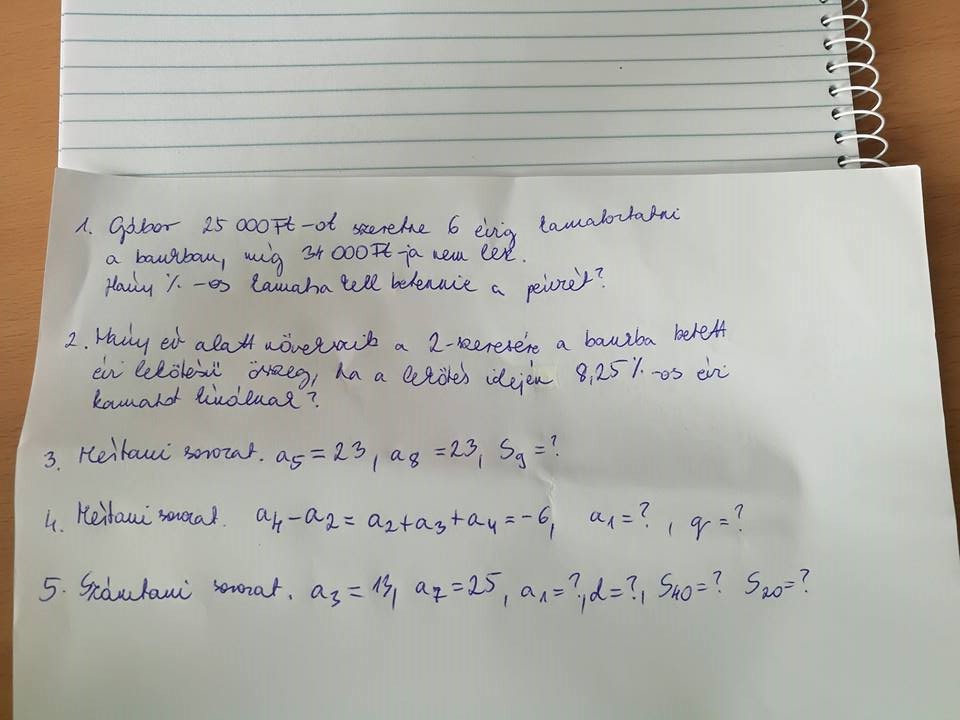 1. Gábor 25 000 Ft-ot szeretne 6 évig kamatoztatni
a bankban, míg 34 000 Ft-ja nem lesz.
Hány %-os kamatra kell betennie a pénzét?
2. Hány év alatt növekszik a 2-szeresére a bankba betett
évi lekötésű összeg, ha a lekötés idején 8,25%-os évi
kamatot kínálnak?
3. Mértani sorozat. a₅ = 23, a₈ = 23, S₉ = ?
4. Mértani sorozat. a₄ - a₂ = a₂ + a₃ + a₄ = -6, a₁ = ?, q = ?
5. Számtani sorozat. a₃ = 13, a₇ = 25, a₁ = ?, d = ?, S₄₀ = ? S₂₀ = ?